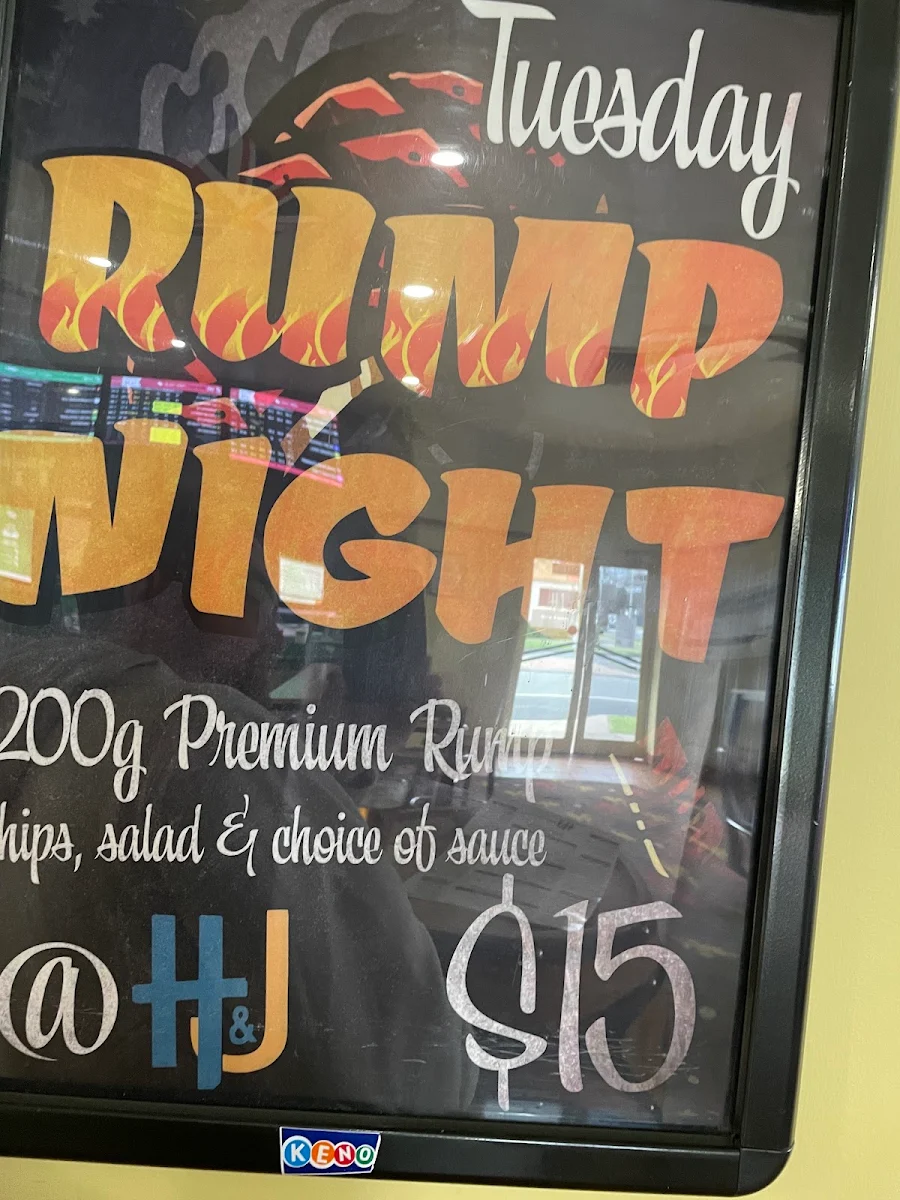 Tuesday
RUMP
NIGHT
200g Premium Rump
hips, salad & choice of sauce
@ H&J $15
KENO